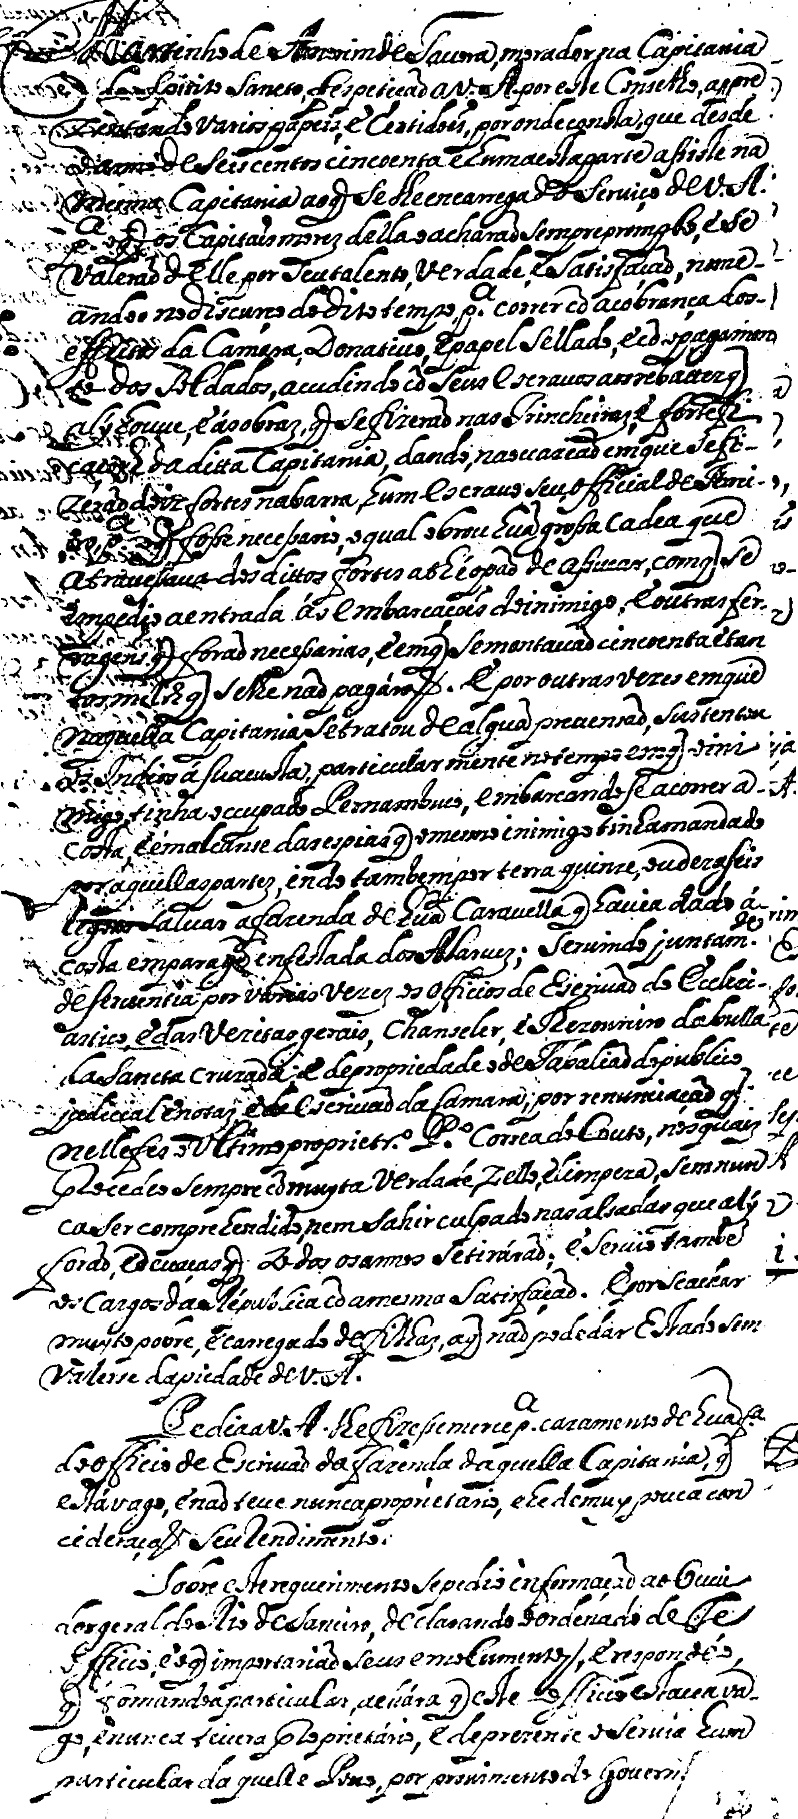 Martinho de Amorim de Tavora, morador na Capitania
do Espirito Sancto, fes petição a V. A. por este Conselho, appre
zentando varios papeis, e Certidões, por onde consta, que desde
o anno de seis centos cincoenta e hum a esta parte assiste na
mesma Capitania ao q̃ se lhe encarrega do serviço de V. A.
p.ª o q̃ os Capitais mores della o acharão sempre prompto, e se
valerão delle por seu talento, verdade, e satisfação, nome-
ando o no discurso do dito tempo p.ª correr cõ a cobrança dos
effeitos da Camara, Donativo, e papel sellado, e cõ o pagamen
to dos soldados, acudindo cõ seus escravos aos rebattes q̃
aly houve, e ás obras, q̃ se fizerão nas Trincheiras, e fortifi
cações da ditta Capitania, dando, na occasião em que se fi-
zerão dois fortes na barra, hum escravo seu official de
p.ª o q̃ fosse necessario, o qual obrou hũa grossa cadea que
atravessava dos dittos fortes athé o pão de assucar, com q̃ se
impedio a entrada ás embarcações do inimigo, e outras fer-
ragens q̃ forão necessarias, e em q̃ se montavão cincoenta e tan
tos mil rs q̃ se lhe não pagárão. E por outras vezes em que
naquella Capitania se tratou de algũa prevenção, sustentou
os Indios á sua custa, particularmente no tempo em q̃ o ini
migo tinha occupado Pernambuco, embarcandose a correr a
costa, e em alcanse das espias q̃ o mesmo inimigo tinha mandado
por aquellas partes, indo tambem por terra quinze, ou dezaseis
legoas salvar a fazenda de hũa Caravella q̃ havia dado á
costa em paragẽ infestada dos Alarves; servindo juntam.te
de serventia por varias vezes os officios de Escrivão do Ecclesi-
astico, e das Vezitas gerais, Chanseler, e Thezoureiro da bulla
da Sancta Cruzada, e de propriedade o de Taballião do publico
judicial e notas, e de Escrivão da Camara, por renunciação q̃
nelle fes o ultimo propriet.rº P.º Correa do Couto, nos quais
procedeo sempre cõ muyta verdade, zello, e limpeza, sem nun
ca ser comprehendido, nem sahir culpado nas alsadas que aly
forão, e devaças q̃ todos os annos se tirárão; e servio tambẽ
os Cargos da Republica cõ a mesma satisfação. E por se achar
muyto pobre, e carregado de filhas, a q̃ não pode dar Estado sem
valerse da piedade de V. A.
Pedia a V. A. lhe fizesse merce p.ª cazamento de hũa f.ª
do officio de Escrivão da fazenda daquella Capitania, q̃
está vago, e não teve nunca proprietario, e he de muy pouca con
cideração seu rendimento.
Sobre este requerimento se pedio informação ao Ouvi
dor geral do Rio de Janeiro, declarando o ordenado deste
officio, e o q̃ importarião seus emolumentos, e respondeo,
q̃ tomando a particular, achára q̃ este officio estava va-
go, e nunca tivera proprietario, e de prezente o servia hum
particular daquelle Povo, por provimento do Govern.